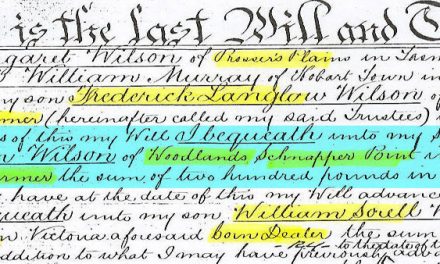 is the Last Will and T
garet Wilson of Prosser's Plains in Tasm
William Murray of Hobart Town in
my son Frederick Langlow Wilson of
rmer (hereinafter called my said Trustees)
of this my Will I bequeath unto my s
Wilson of Woodlands, Schnapper Point
armer the sum of two hundred pounds in
have at the date of this my Will advanc
queath unto my son William Sorell W
Victoria aforesaid Corn Dealer the sum
addition to what I may have previously adva